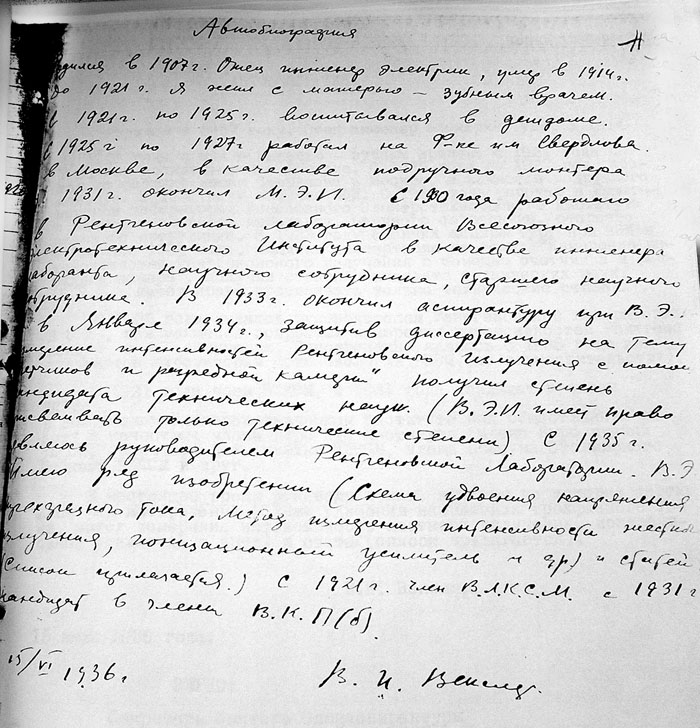 Автобиография
дился в 1907г. Отец инженер электрик, умер в 1914г.
до 1921г. я жил с матерью – зубным врачем.
с 1921г. по 1925г. воспитывался в детдоме.
с 1925г по 1927г работал на ф-ке им Свердлова.
в Москве, в качестве подручного монтера
1931г. окончил М.Э.И. С 1930 года работаю
в Рентгеновской лаборатории Всесоюзного
лектротехнического Института в качестве инженера
аборанта, научного сотрудника, старшего научного
трудника. В 1933г. окончил аспирантуру при В.Э.
в Январе 1934г., защитив диссертацию на тему
мерение интенсивностей Рентгеновского излучения с помощ
етчиков и разрядной камеры" получил степень
андидата технических наук. (В.Э.И. имеет право
исваивать только технические степени) С 1935г.
являюсь руководителем Рентгеновской Лаборатории. В.Э
Имею ряд изобретений (Схема удвоения напряжения
трехфазного тока, метод измерения интенсивности жестк
излучения, ионизационный усилитель и др.) и статей
(Список прилагается.) С 1921г. член В.Л.К.С.М. с 1931г
кандидат в члены В.К.П(б).
15/VI 1936г
В. И. Векслер.